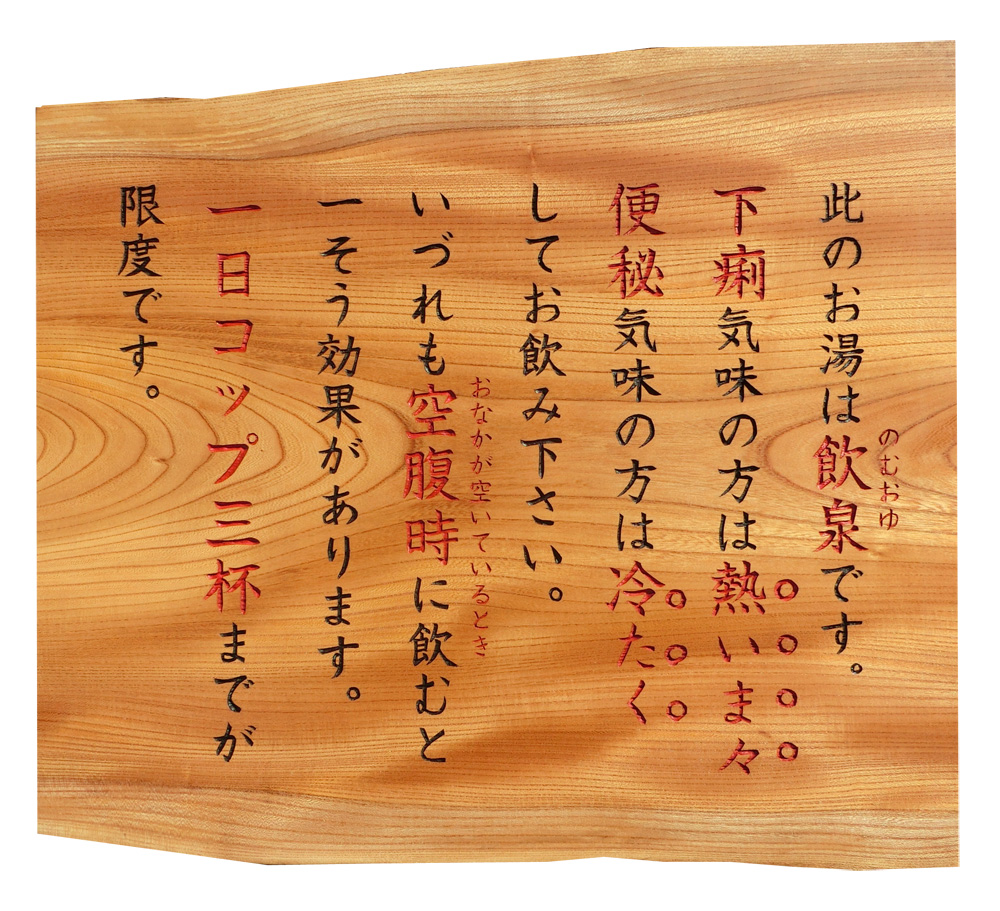 此のお湯は飲泉です。
のむおゆ
下痢気味の方は熱いま々
便秘気味の方は冷たく
してお飲み下さい。
いづれも空腹時に飲むと
おなかが空いているとき
一そう効果があります。
一日コップ三杯までが
限度です。